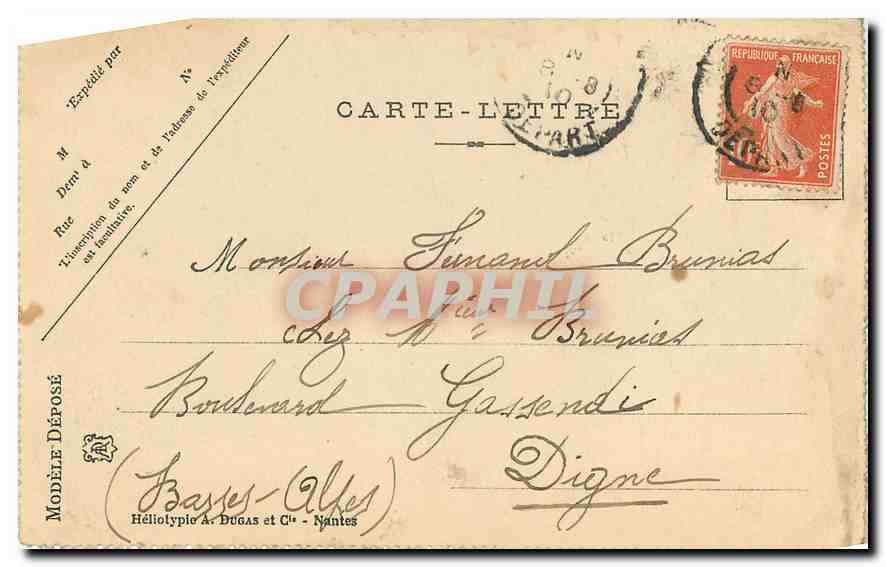 Expédié par
N°
M
Demt à
Rue
L'inscription du nom et de l'adresse de l'expéditeur
est facultative.
CARTE-LETTRE
DEPART
REPUBLIQUE FRANÇAISE
POSTES
DEPART
Monsieur Fernand Brunias
chez Mr Brunias
Boulevard Gassendi
Digne
(Basses-Alpes)
CPAPHIL
MODÈLE DÉPOSÉ
Héliotypie A. DUGAS et Cie - Nantes